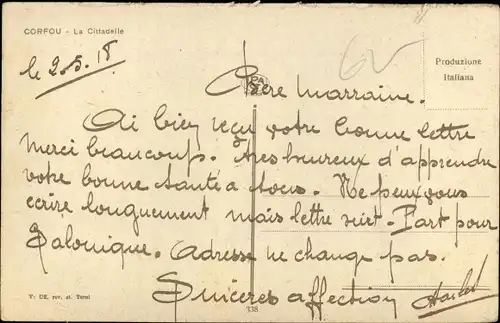 CORFOU - La Cittadelle
le 2.5.18
Produzione
Italiana
Chère marraine.
Ai bien reçu votre bonne lettre
merci beaucoup. très heureux d'apprendre
votre bonne santé a tous. Ne peux vous
écrire longuement mais lettre suit - Part pour
Salonique. Adresse ne change pas.
Sincères affection
V: UZ, rev. st. Terni
138